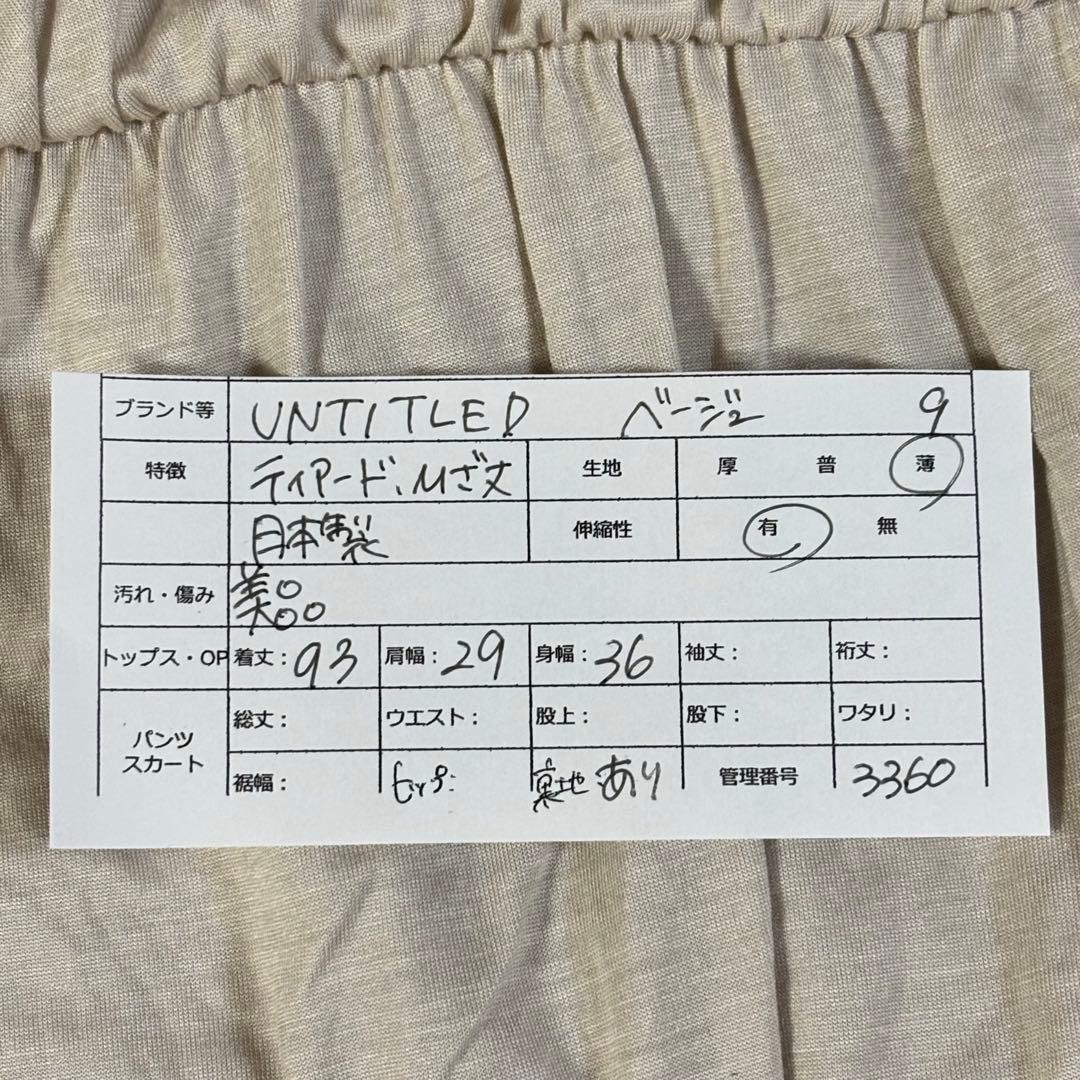 ブランド等 UNTITLED ベージュ 9
特徴 ティアード、ひざ丈 生地 厚 普 薄
日本製 伸縮性 有 無
汚れ・傷み 美品
トップス・OP 着丈：93 肩幅：29 身幅：36 袖丈： 裄丈：
パンツ スカート 総丈： ウエスト： 股上： 股下： ワタリ：
裾幅： ヒップ： 裏地：あり 管理番号 3360